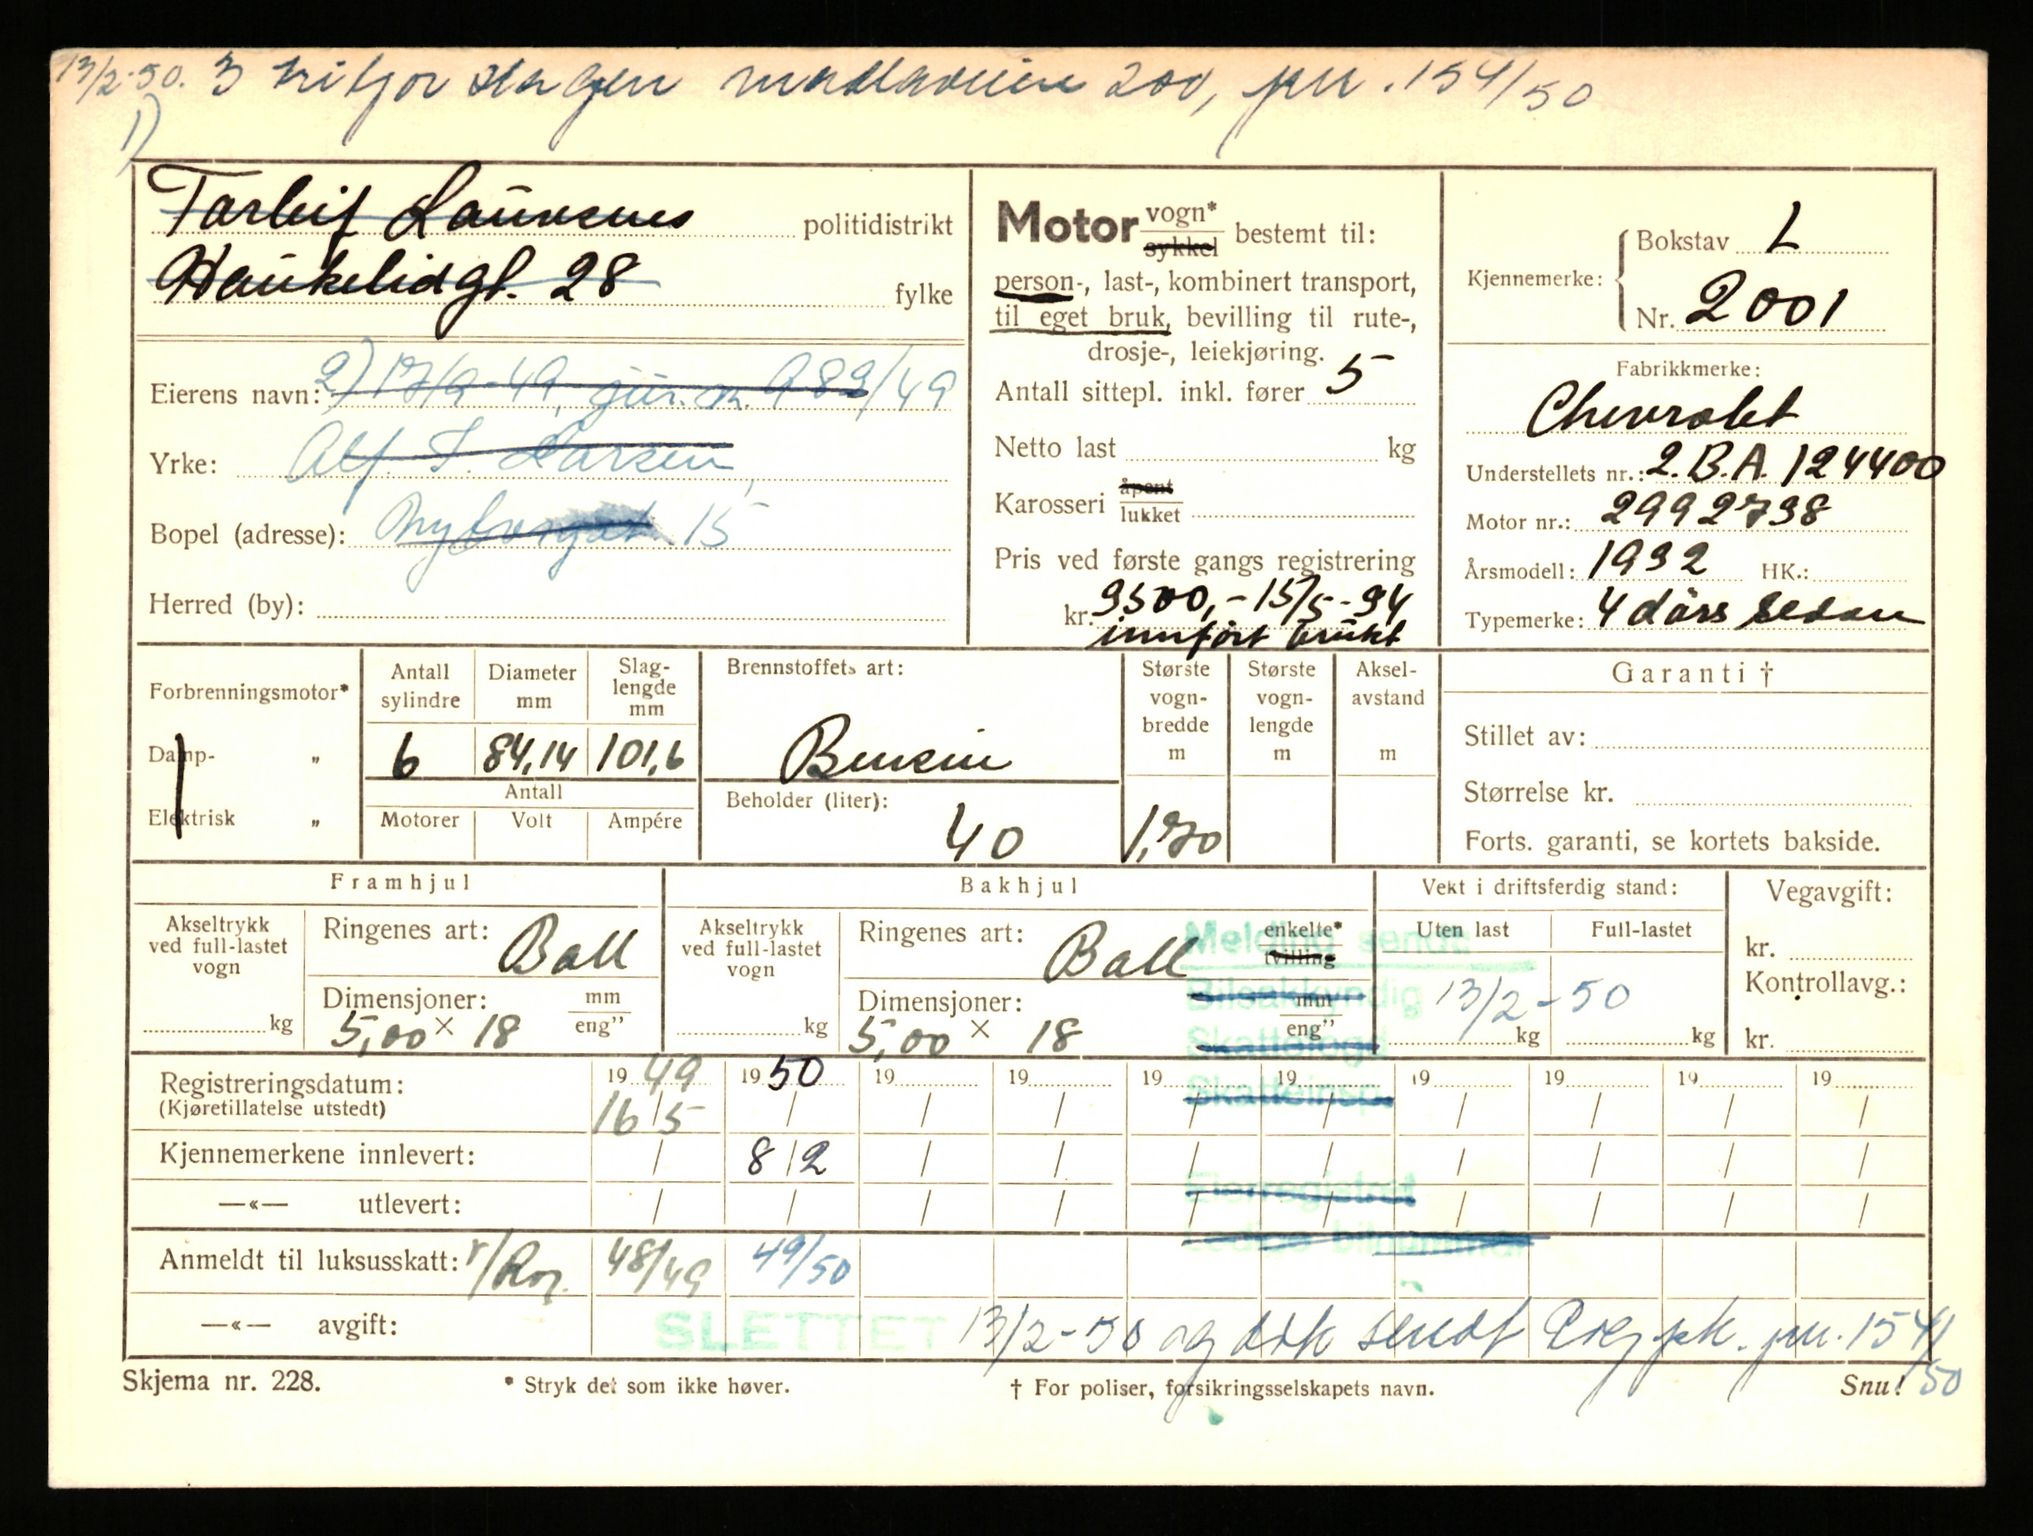 13/2-50. 3 Hagen 200, jnr. 154/50
1)
Torleif Laurenes politidistrikt
Haukelidgt. 28 fylke
Motor vogn* sykkel bestemt til:
person-, last-, kombinert transport,
til eget bruk, bevilling til rute-,
drosje-, leiekjøring.
Antall sittepl. inkl. fører 5
Netto last kg
Karosseri åpent lukket
Pris ved første gangs registrering
kr. 9500,- 15/5-34
innført brukt
Kjennemerke: Bokstav L
Nr. 2001
Fabrikkmerke:
Chevrolet
Understellets nr.: 2.B.A. 124400
Motor nr.: 2992738
Årsmodell: 1932 HK.:
Typemerke: 4 dörs sedan
Eierens navn: 2) 17/9-49, jnr. 989/49
Yrke: Alf S. Larsen
Bopel (adresse): 15
Herred (by):
Forbrenningsmotor*
Damp- „
Elektrisk „
Antall sylindre 6
Diameter mm 84,14
Slaglengde mm 101,6
Antall
Motorer Volt Ampére
Brennstoffets art:
Bensin
Beholder (liter):
40
Største vognbredde m 1,70
Største vognlengde m
Akselavstand m
Garanti †
Stillet av:
Størrelse kr.
Forts. garanti, se kortets bakside.
Framhjul
Akseltrykk ved full-lastet vogn kg
Ringenes art: Ball
Dimensjoner: mm eng”
5,00 × 18
Bakhjul
Akseltrykk ved full-lastet vogn kg
Ringenes art: Ball enkelte* tvilling
Dimensjoner: mm eng”
5,00 × 18
Melding sendt
Bilsakkyndig 13/2-50
Skattefogd
Skatteinsp.
Eierregistret
Ledige bilnummer
Vekt i driftsferdig stand:
Uten last Full-lastet
kg kg
Vegavgift:
kr.
Kontrollavg.:
kr.
Registreringsdatum: 19 49 19 50 19 19 19 19 19 19 19 19
(Kjøretillatelse utstedt) 16/5 / / / / / / / / /
Kjennemerkene innlevert: / 8/2 / / / / / / / /
—«— utlevert: / / / / / / / / / /
Anmeldt til luksusskatt: 48/49 49/50
—«— avgift: SLETTET 13/2-50 og sendt jnr. 154/50
Skjema nr. 228. * Stryk det som ikke høver. † For poliser, forsikringsselskapets navn. Snu!